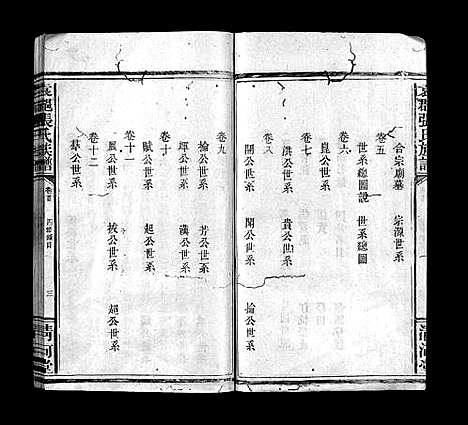 張氏族譜
合宗廟墓 宗源世系
卷五
世系總圖說 世系總圖
卷六
崑公世系
卷七
洪公世系 貴公世系
卷八
開公世系 聞公世系 掄公世系
清河堂
卷九
掄公世系 芳公世系
暉公世系 漢公世系
卷十
賦公世系 超公世系
卷十一
鳳公世系 拔公世系
卷十二
慕公世系
張氏族譜
卷首
三
清河堂